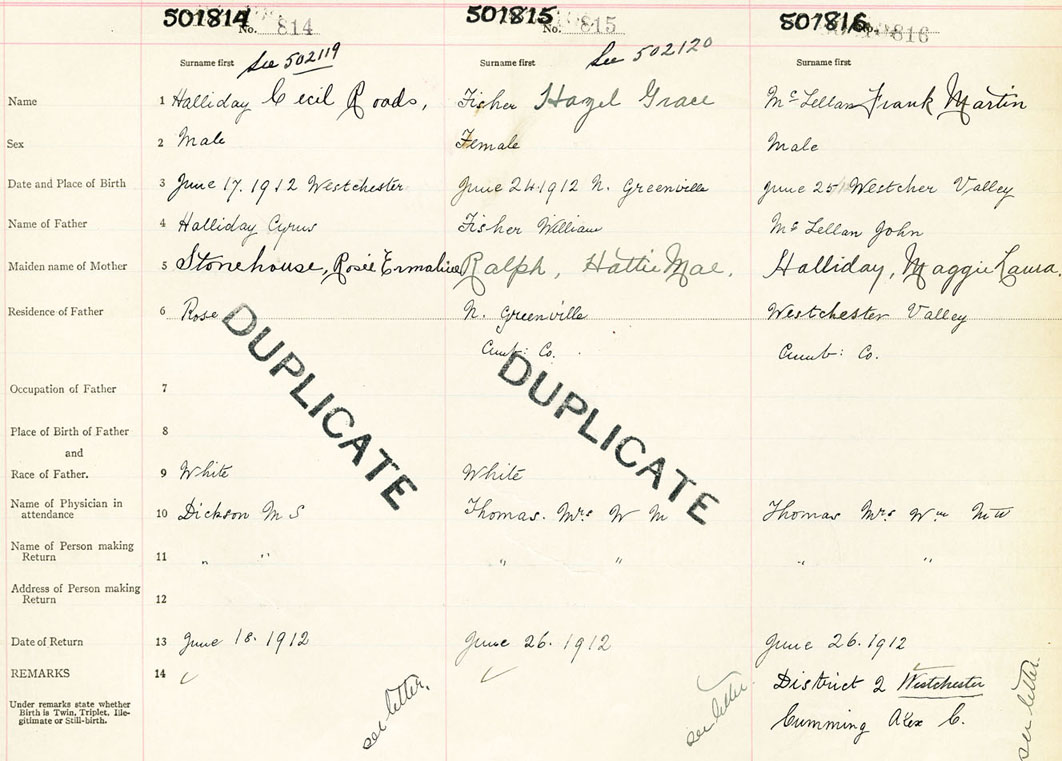 501814 501815 501816
No. 814 No. 815 No. 816
See 502119 See 502120
Surname first Surname first Surname first
Name 1 Halliday Cecil Roads, Fisher Hazel Grace McLellan Frank Martin
Sex 2 Male Female Male
Date and Place of Birth 3 June 17. 1912 Westchester June 24 1912 N. Greenville June 25 Westcher Valley
Name of Father 4 Halliday Cyrus Fisher William McLellan John
Maiden name of Mother 5 Stonehouse, Rosie Ermaline Ralph, Hattie Mae. Halliday, Maggie Laura.
Residence of Father 6 Rose N. Greenville Westchester Valley
Cumb: Co. Cumb: Co.
DUPLICATE DUPLICATE
Occupation of Father 7
Place of Birth of Father 8
and
Race of Father. 9 White White
Name of Physician in
attendance 10 Dickson M S Thomas. Mrs W M Thomas Mrs Wm
Name of Person making
Return 11 " " " " " "
Address of Person making
Return 12
Date of Return 13 June 18. 1912 June 26. 1912 June 26. 1912
REMARKS 14 ✓ ✓ District 2 Westchester
Under remarks state whether
Birth is Twin, Triplet, Ille-
gitimate or Still-birth.
Cumming Alex C.
see letter. see letter. see letter.